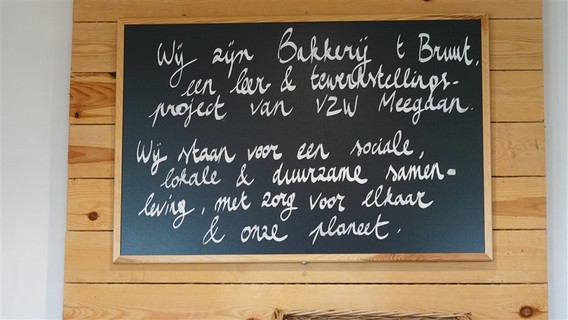 Wij zijn Bakkerij 't Bruut,
een leer & tewerkstellings-
project van VZW Meegaan.
Wij staan voor een sociale,
lokale & duurzame samen-
leving, met zorg voor elkaar
& onze planeet.